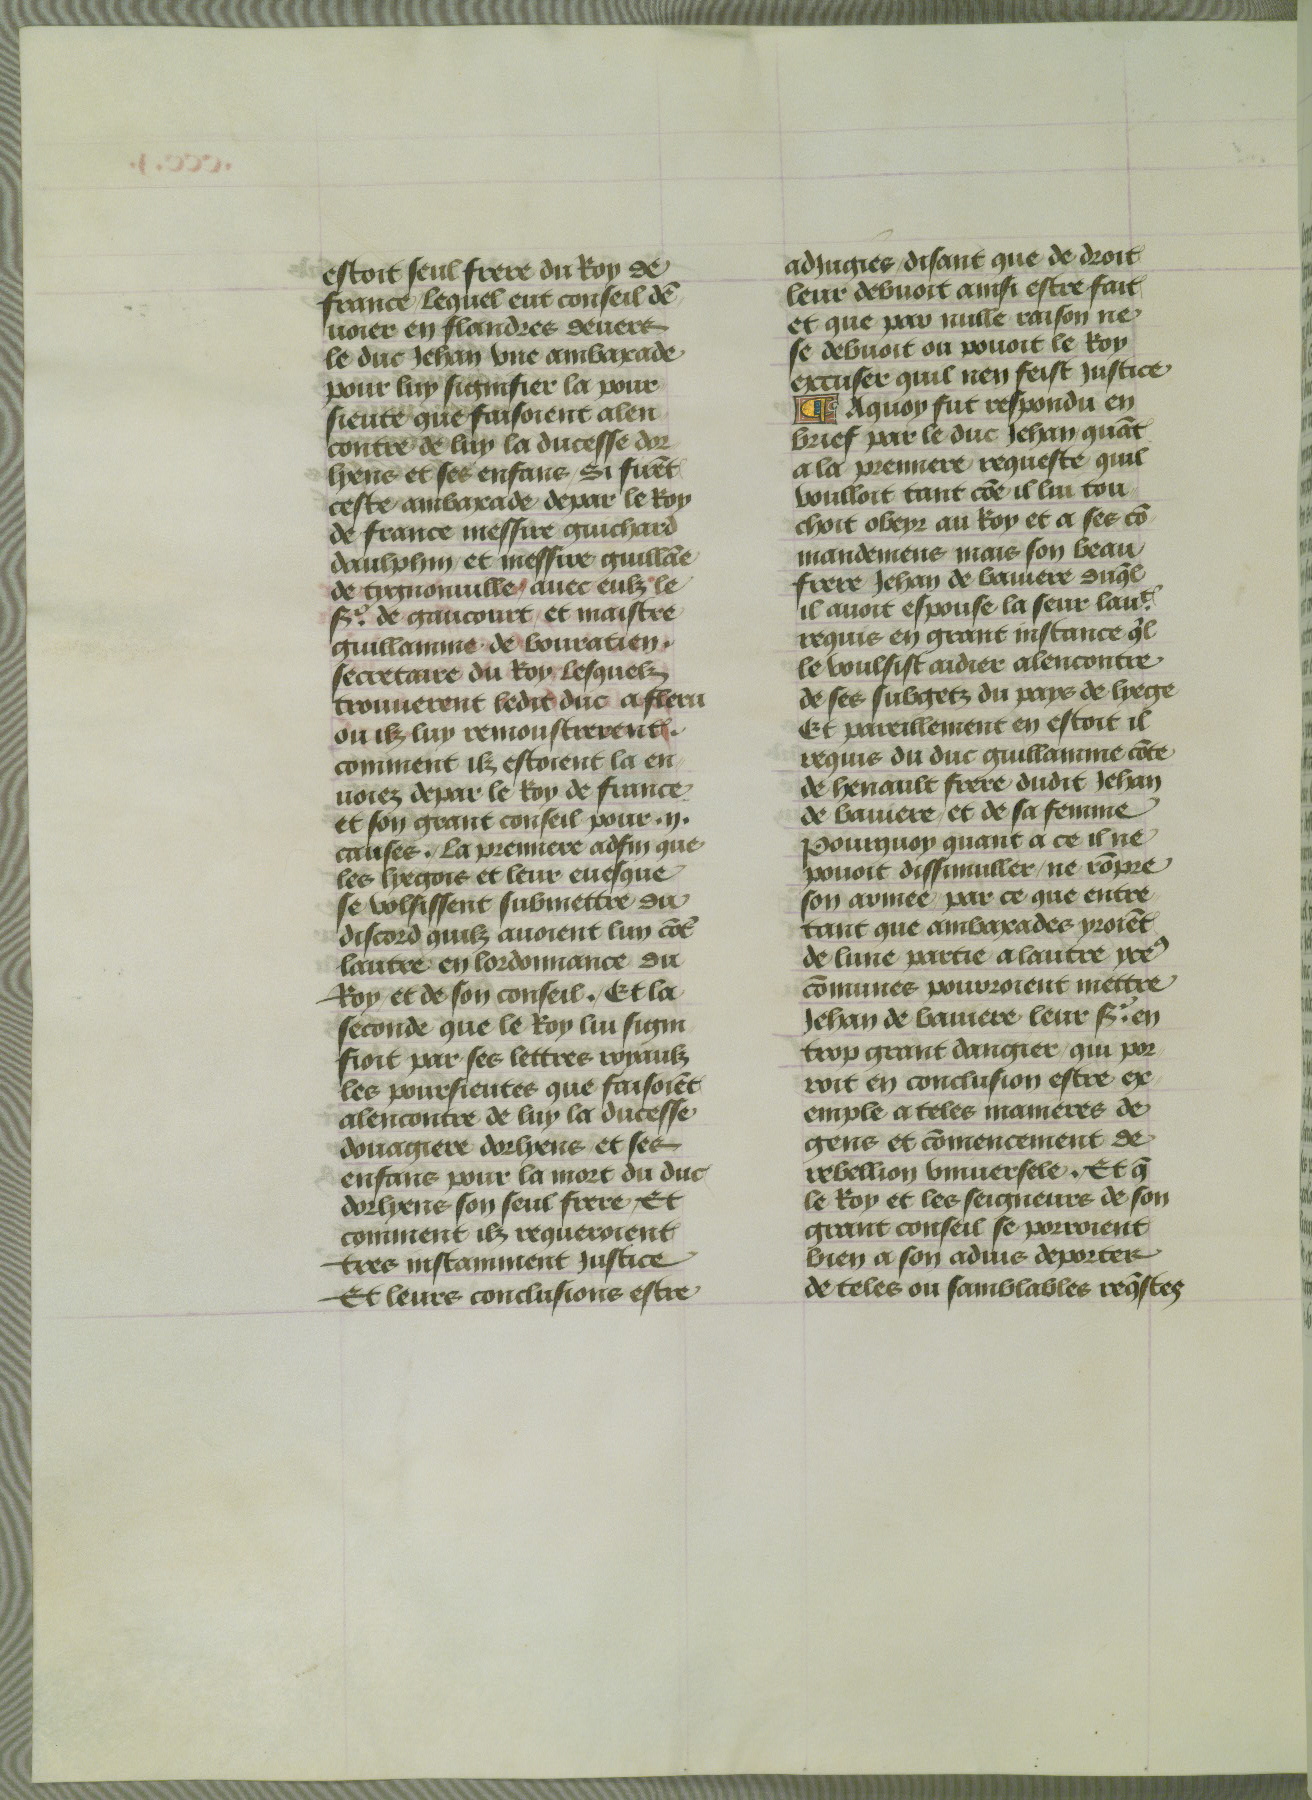 estoit seul frere du Roy de
france / lequel eut conseil dē
uoier en flandres deuers
le duc Jehan vne ambaxade
pour luy signifier la pour
sieute que faisoient alen
contre de luy la ducesse dor
lyens et ses enfans / Si furēt
ceste ambaxade depar le Roy
de france messire guichard
daulphin / et messire guillāe
de tignonuille / auec eulz le
Sr. de gaucourt / et maistre
guillamme de bouratien .
secretaire du Roy / lesquelz
trouuerent ledit duc a
ou ilz luy remoustrerent .
comment ilz estoient la en
uoiez depar le Roy de france
et son grant conseil pour .ij.
causes . La premiere adfin que
les lyegois et leur euesque
se volsissent submettre du
discord quilz auoient lun cōt
lautre en lordonnance du
Roy et de son conseil . Et la
seconde que le Roy lui signi
fioit par ses lettres royaulz
les poursieutes que faisoiēt
alencontre de luy la ducesse
douagiere dorlyens et ses
enfans pour la mort du duc
dorlyens son seul frere / Et
comment ilz requeroient
tres instamment Justice
Et leurs conclusions estre
adJugies / disant que de droit
leur debuoit ainsi estre fait
et que par nulle raison ne
se debuoit ou pouoit le Roy
excuser quil nen feist Justice
Aquoy fut respondu en
brief par le duc Jehan quāt
a la premiere requeste quil
voulloit tant cōe il lui tou
choit obeyr au Roy et a ses cō
mandemens mais son beau
frere Jehan de bauiere duq̄l
il auoit espouse la seur
requis en grant instance q̄l
le voulsist aidier alencontre
de ses subgetz du pays de lyege
Et pareillement en estoit il
requis du duc guillamme cōte
de henault frere dudit Jehan
de bauiere / et de sa femme
Pourquoy quant a ce il ne
pouoit dissimuller / ne rōpre
son armee / par ce que entre
tant que ambaxades yroiēt
de lune partie a lautre
cōmunes pouroient mettre
Jehan de bauiere leur Sr. en
trop grant dangier / qui por
roit en conclusion estre ex
emple a teles manieres de
gens et cōmencement de
rebellion vniuersele . Et q̄
le Roy et les seigneurs de son
grant conseil se porroient
bien a son aduis deporter
de teles ou samblables req̄stes